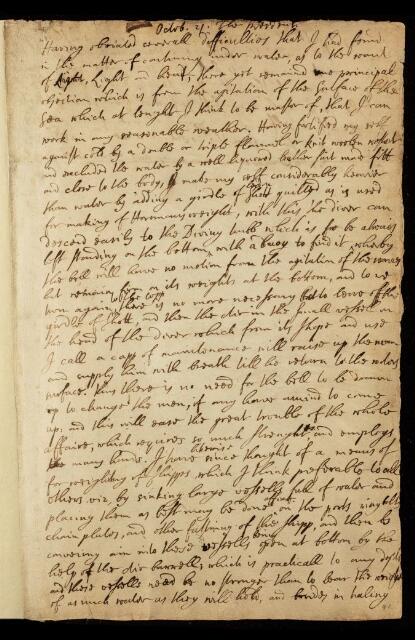 Octob. The president
Having obviated severall difficulties that I had found
in the matter of continuing under water, as to the want
of Light and heat, there yet remained one principal
objection which is from the agitation of the surface of the
Sea which at lenght I think to be master of, that I can
work in any reasonable weather. Having fortified my self
against cold by a double or triple flannel or knit woolen wastcoat
and excluded the water by a well liquored leather suit made fitt
and close to the body, I make my self considerably heavier
than water by adding a girdle of Shott quilted as is used
for making of Horsmans weight, with this the diver can
descend easily to the Diving tubb which is to be always
left standing on the bottom, with a buoy to find it, whereby
the bell will have no motion from the agitation of the
but remains on its weights at the bottom, and to re
turn again there is no more necessary but to leave of the
girdle of Shott, and then the air in the small vessell on
the head of the diver which from its shape and use
I call a capp of maintenance will raise up the man
and supply him with breath till he return to the waters
surface. thus there is no need for the bell to be drawn
up to change the men, if any have a mind to come
up; and this will ease the great trouble of the whole
affaire, which requires so much strenght, and employs
many hands. I have likewise since thought of a means of
for weighing of Shipps which I think preferable to all
others viz. by sinking large vessells full of water and
placing them as best may be done on the ports
chainplates, and other fastning of the shipp, and then by
conveying air into these vessells being open at bottom by the
help of the air barrells which is practicall to any depth
and these vessells need be no stronger than to bear the weight
of as much water as they will hold, and besides in haling